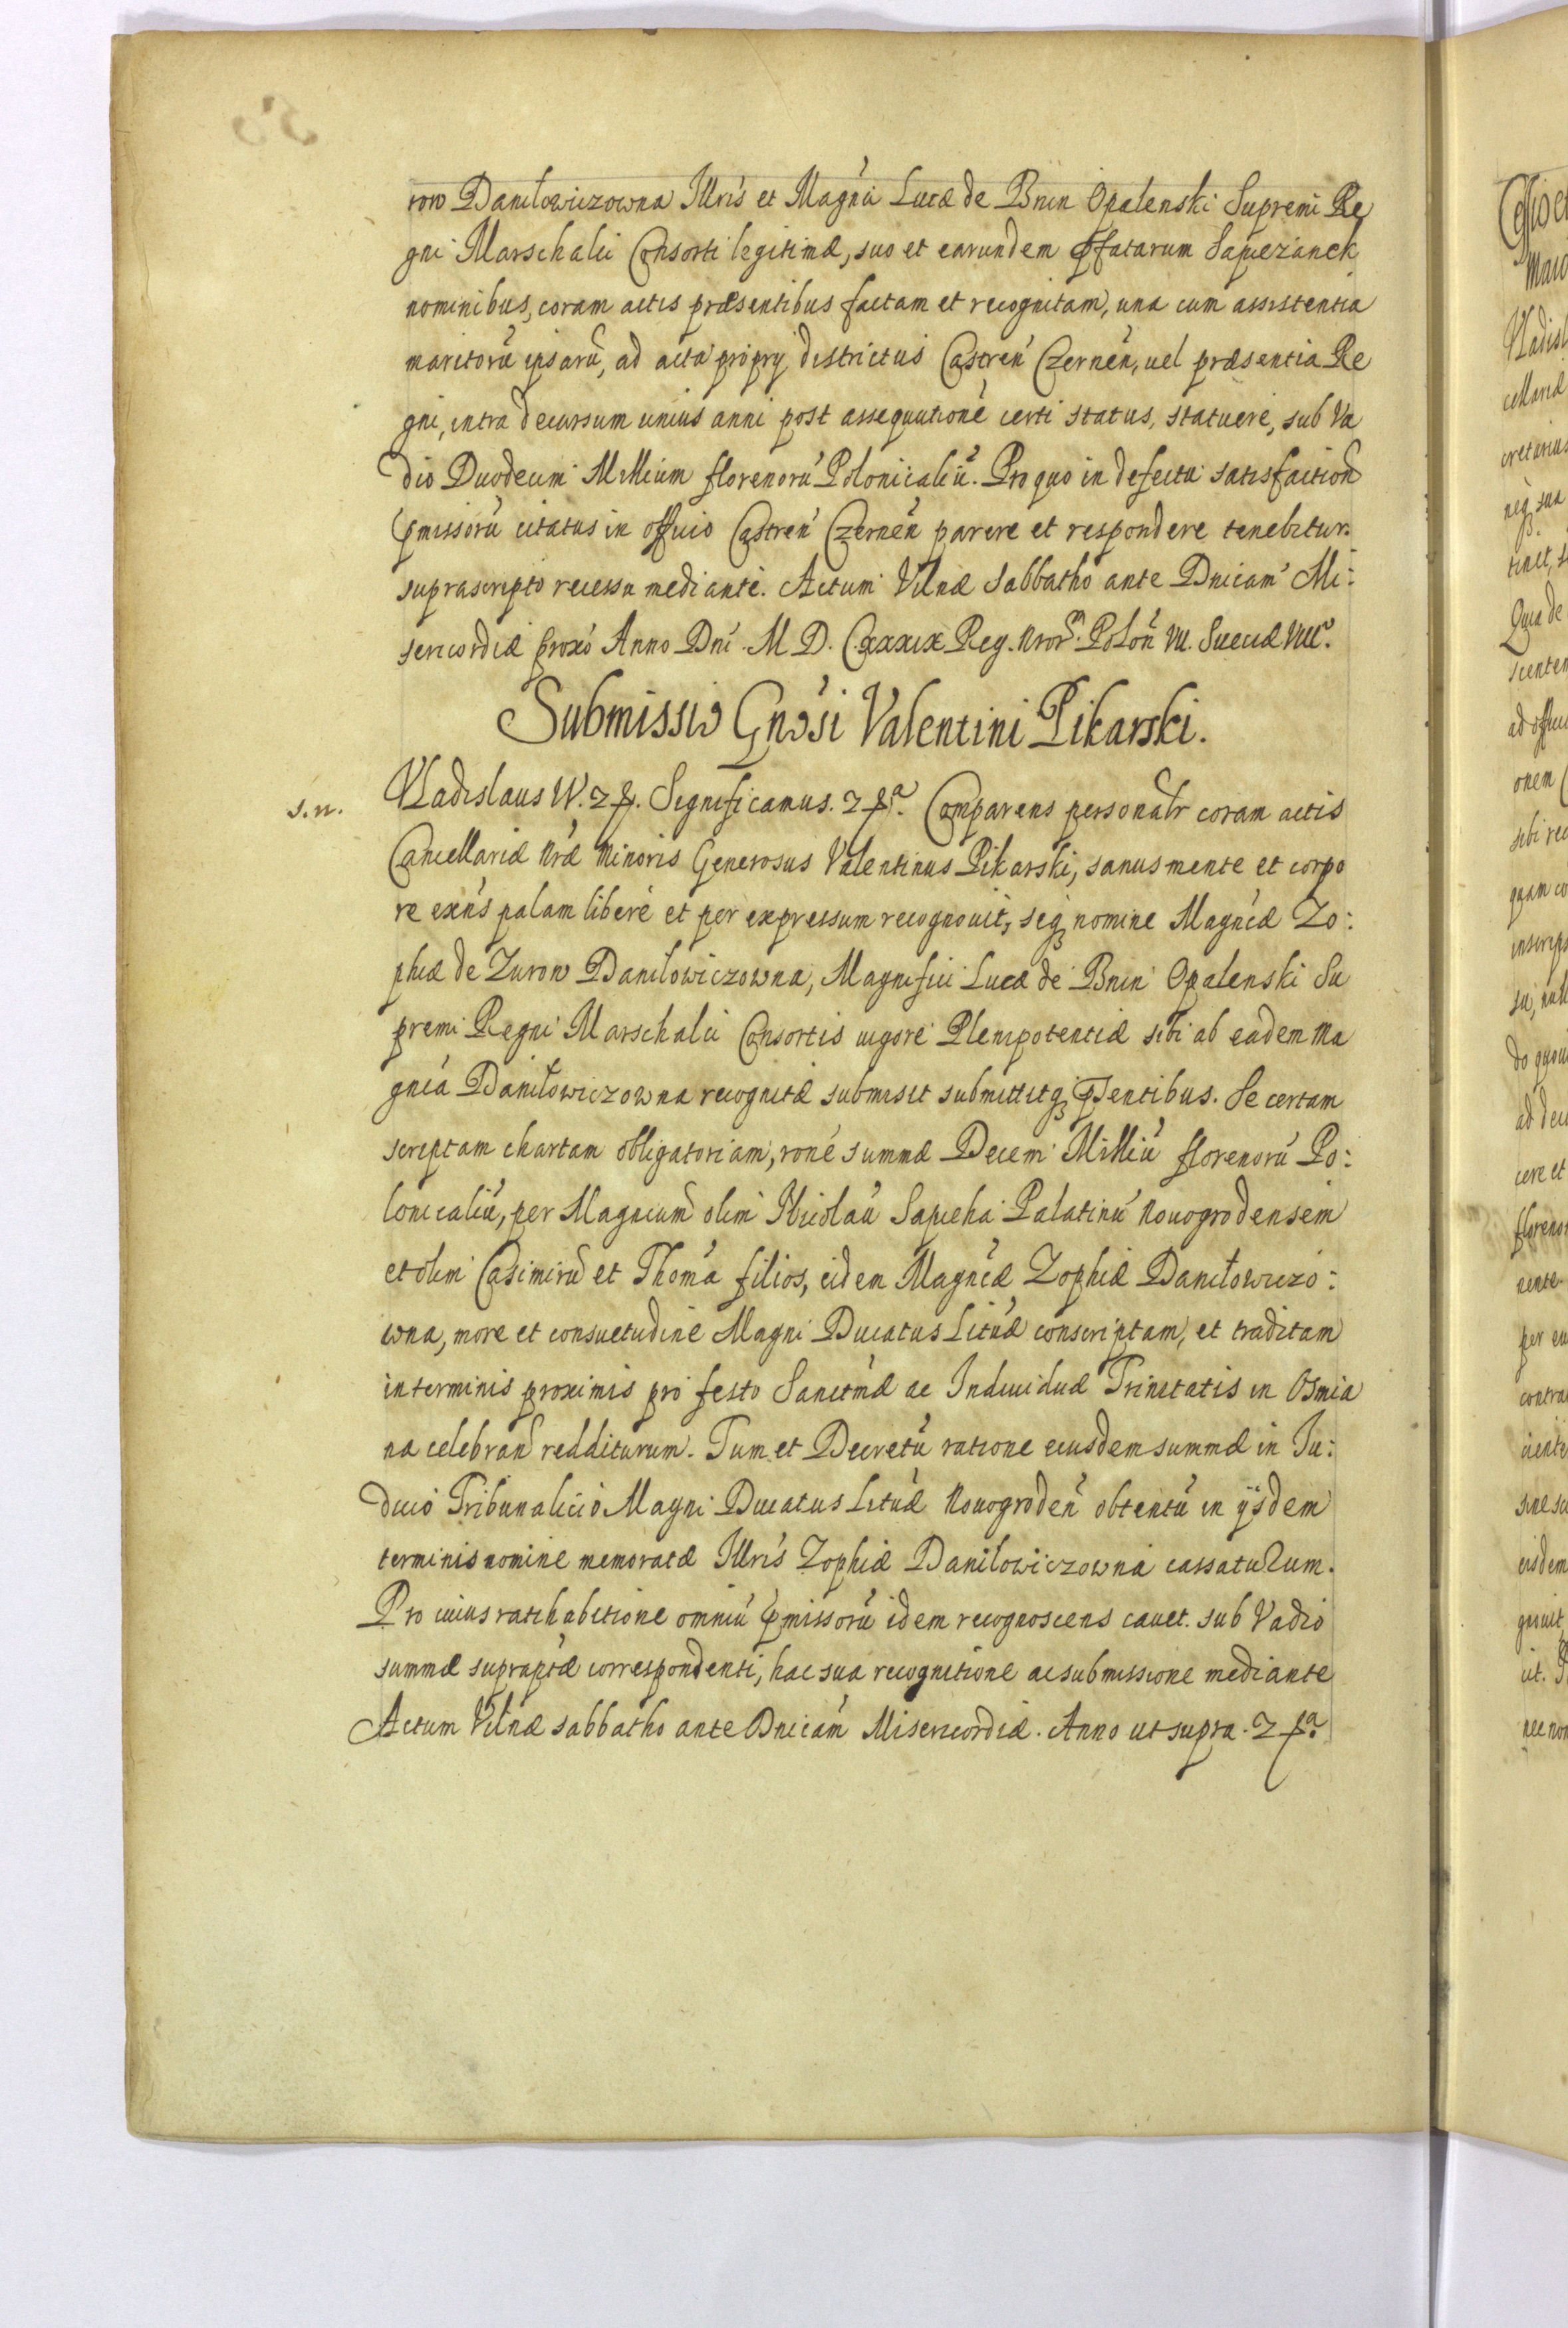 row Daniłowiczowna Illris et Magńci Lucæ de Bnin Opalenski Supremi Re
gni Marschalci Consorti legitimæ, suo et earundem pfatarum Sapiezanek
nominibus, coram actis præsentibus factam et recognitam, una cum assistentia
maritorũ ipsarũ, ad acta proprij districtus Castreñ Czerneñ, uel præsentia Re
gni, intra decursum unius anni post assequutionẽ certi status, statuere, sub Va
dio Duodecim Millium florenorũ Polonicaliũ. Pro quo in defectu satisfaction
pmissorũ citatus in officio Castreñ Czerneñ parere et respondere tenebitur.
suprascripto recessu mediante. Actum Vilnæ Sabbatho ante Dnicam Mi:
sericordiæ proxo Anno Dni M D. CXXXIX Reg. Nror. Poloñ VII. Sueciæ VIII.
Submissio Gnosi Valentini Pikarski.
s.n. Vladislaus IV. z p. Significamus. z pa. Comparens personalr coram actis
Cancellariæ Nræ Minoris Generosus Valentinus Pikarski, sanus mente et corpo
re exñs palam liberè et per expressum recognouit, seq nomine Magncæ Zo:
phiæ de Zurow Daniłowiczowna, Magnifici Lucæ de Bnin Opalenski Su
premi Regni Marschalci Consortis uigore Plenipotentiæ sibi ab eadem Ma
gnca Daniłowiczowna recognitæ submisit submittitq psentibus. Se certam
scriptam chartam obligatoriam, rone summæ Decem Milliũ florenorũ Po:
lonicaliũ, per Magncum olim Nicolaũ Sapieha Palatinũ Nouogrodensem
et olim Casimirũ et Thomã filios, eidem Magncæ Zophiæ Daniłowiczo:
wna, more et consuetudine Magni Ducatus Lituæ conscriptam, et traditam
in terminis proximis pro festo Sanctmæ ac Indiuiduæ Trinitatis in Osmia
na celebran redditurum. Tum et Decretũ ratione eiusdem summæ in Iu:
dicio Tribunalicio Magni Ducatus Lituæ Nouogrodeñ obtentũ in ijsdem
terminis nomine memoratæ Illris Zophiæ Daniłowiczowna cassaturum.
Pro cuius ratihabitione omniũ pmissorũ idem recognoscens cauet. sub Vadio
summæ supraptæ correspondenti, hac sua recognitione ac submissione mediante
Actum Vilnæ sabbatho ante Dnicam Misericordiæ. Anno ut supra. z pa.